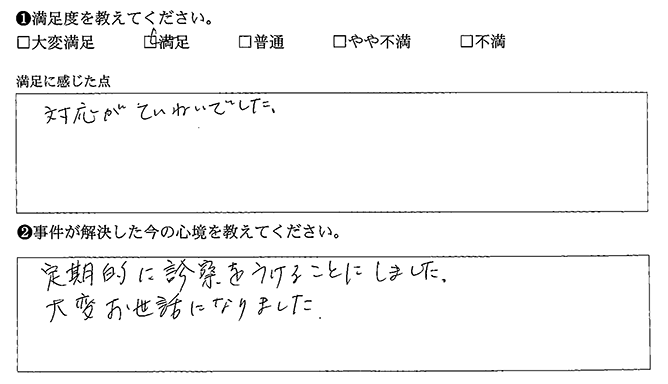 ❶満足度を教えてください。
□大変満足 □満足 □普通 □やや不満 □不満
満足に感じた点
対応がていねいでした。
❷事件が解決した今の心境を教えてください。
定期的に診察をうけることにしました。
大変お世話になりました.